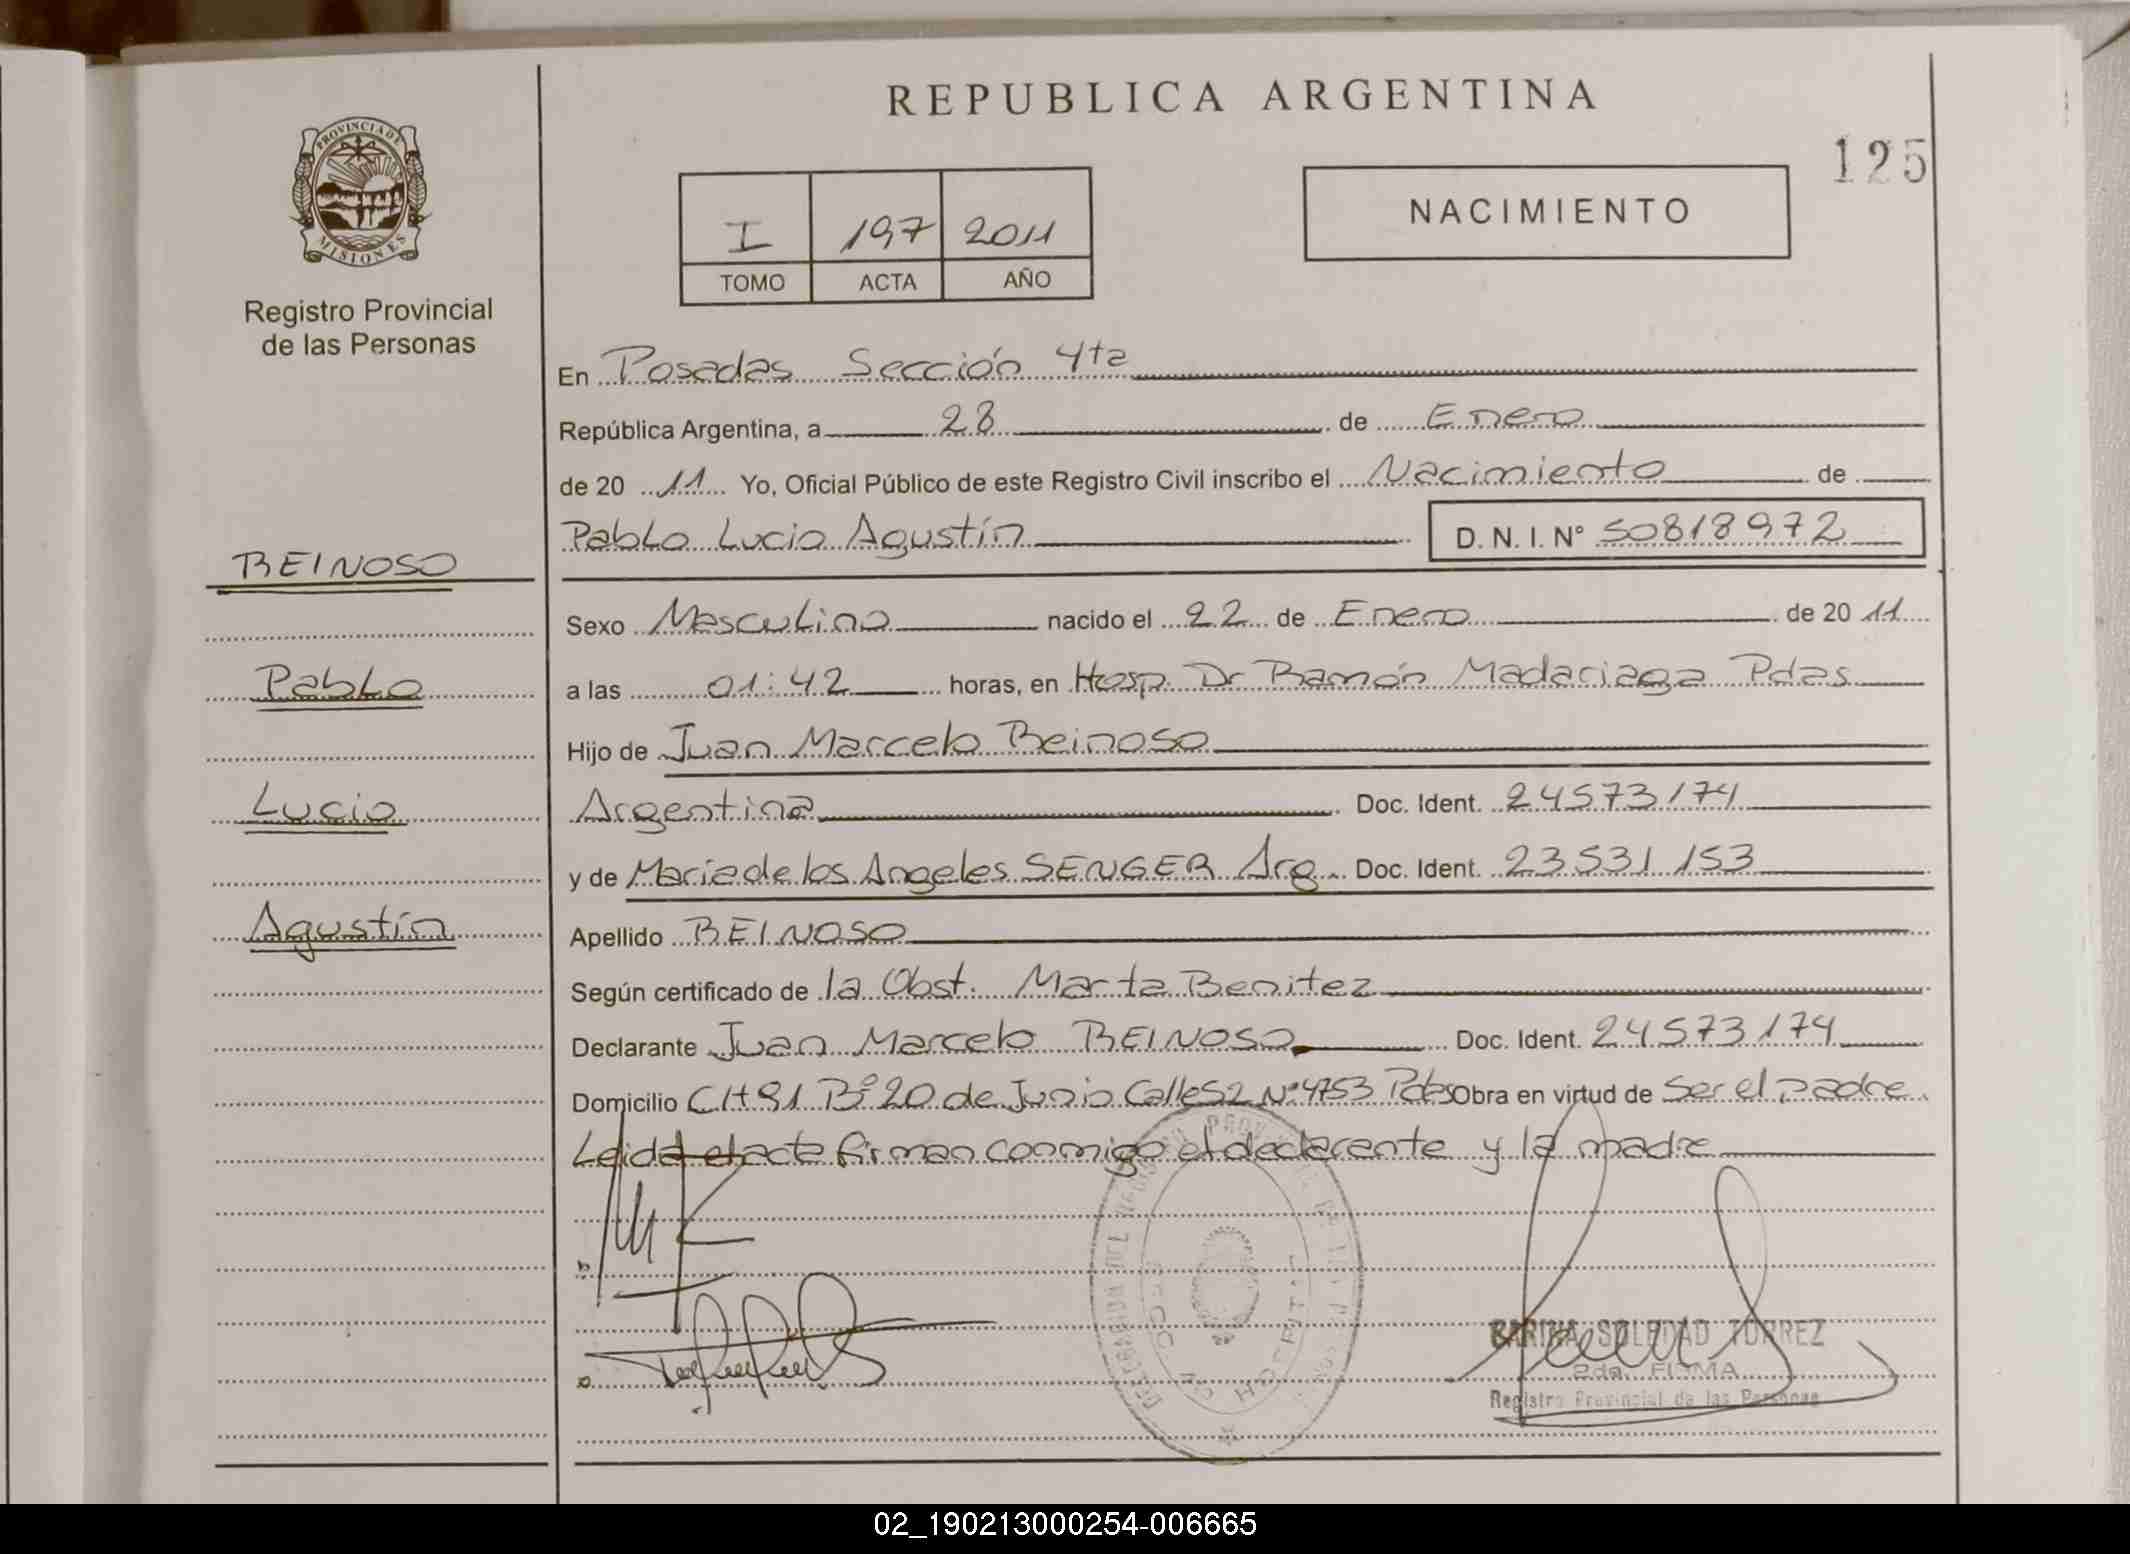 REPUBLICA ARGENTINA
125
PROVINCIA DE
MISIONES
Registro Provincial
de las Personas
I 197 2011
TOMO ACTA AÑO
NACIMIENTO
En Posadas Sección 4ta
República Argentina, a 28 de Enero
de 20 11 Yo, Oficial Público de este Registro Civil inscribo el Nacimiento de
Pablo Lucio Agustín D. N. I. Nº 50818972
BEINOSO
Sexo Masculino nacido el 22 de Enero de 20 11
Pablo
a las 01:42 horas, en Hosp. Dr Ramón Madariaga Pdas
Hijo de Juan Marcelo Beinoso
Lucio
Argentina Doc. Ident. 24573174
y de Maria de los Angeles SENGER Arg. Doc. Ident. 23531153
Agustín
Apellido BEINOSO
Según certificado de la Obst. Marta Benitez
Declarante Juan Marcelo BEINOSO Doc. Ident. 24573174
Domicilio CH 91 Bº 20 de Junio Calle 52 Nº 4753 Pdas Obra en virtud de Ser el padre
Leida el acta firman conmigo el declarante y la madre
SOLEDAD TORREZ
2da. FIRMA
Registro Provincial de las Personas
02_190213000254-006665